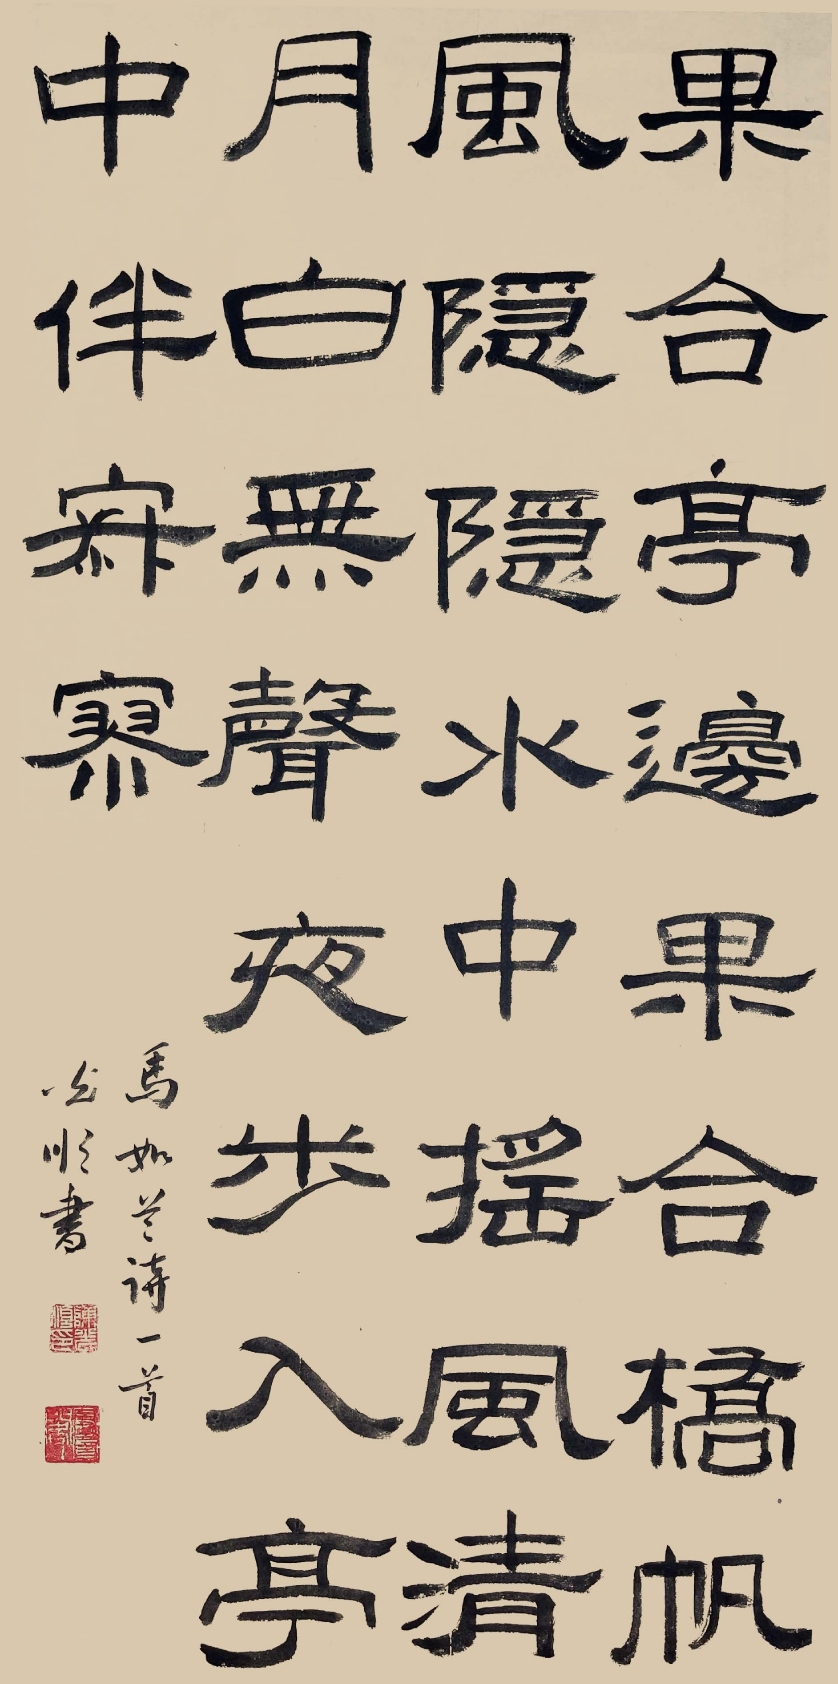 果合亭邊果合橋帆
風隱隱水中搖風清
月白無聲夜步入亭
中伴寂寥
馬如兰詩一首
順书